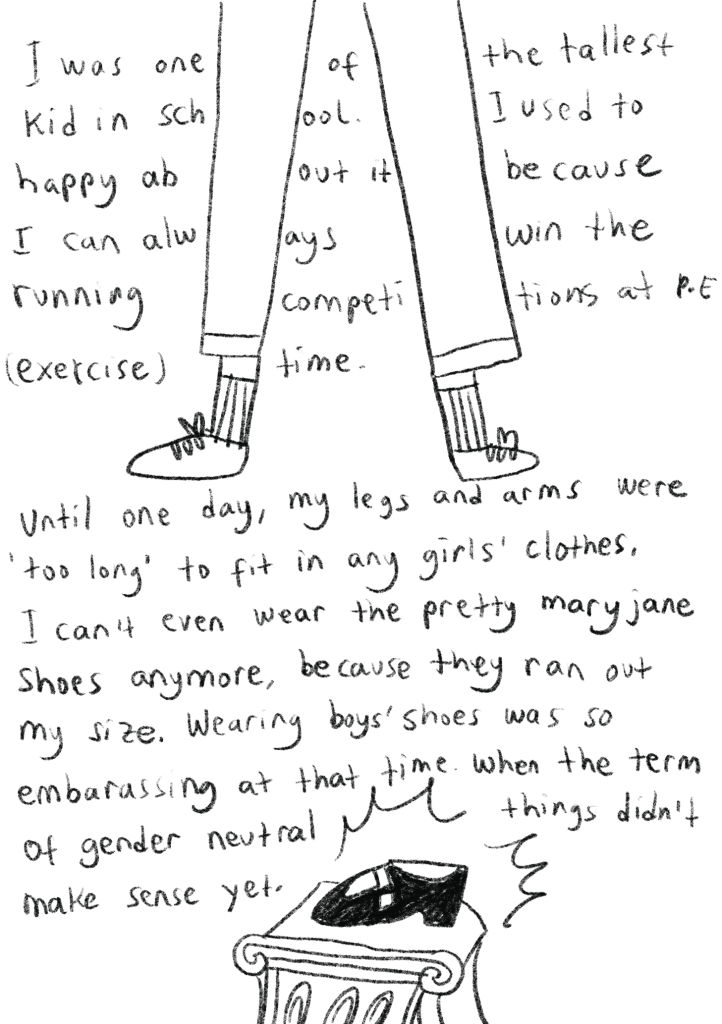 I was one of the tallest
kid in school. I used to
happy about it because
I can always win the
running competitions at P.E
(exercise) time.
Until one day, my legs and arms were
'too long' to fit in any girls' clothes.
I can't even wear the pretty mary jane
shoes anymore, because they ran out
my size. Wearing boys' shoes was so
embarassing at that time. When the term
of gender neutral things didn't
make sense yet.